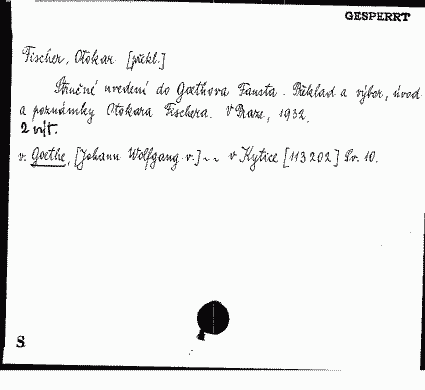 GESPERRT
Fischer, Otokar [překl.]
Stručné uvedení do Goethova Fausta. Překlad a výbor, úvod
a poznámky Otokara Fischera. V Praze, 1932.
2 výt.
v. Goethe, [Johann Wolfgang v.] ~ ~ v Kytice [113202] Sv. 10.
S